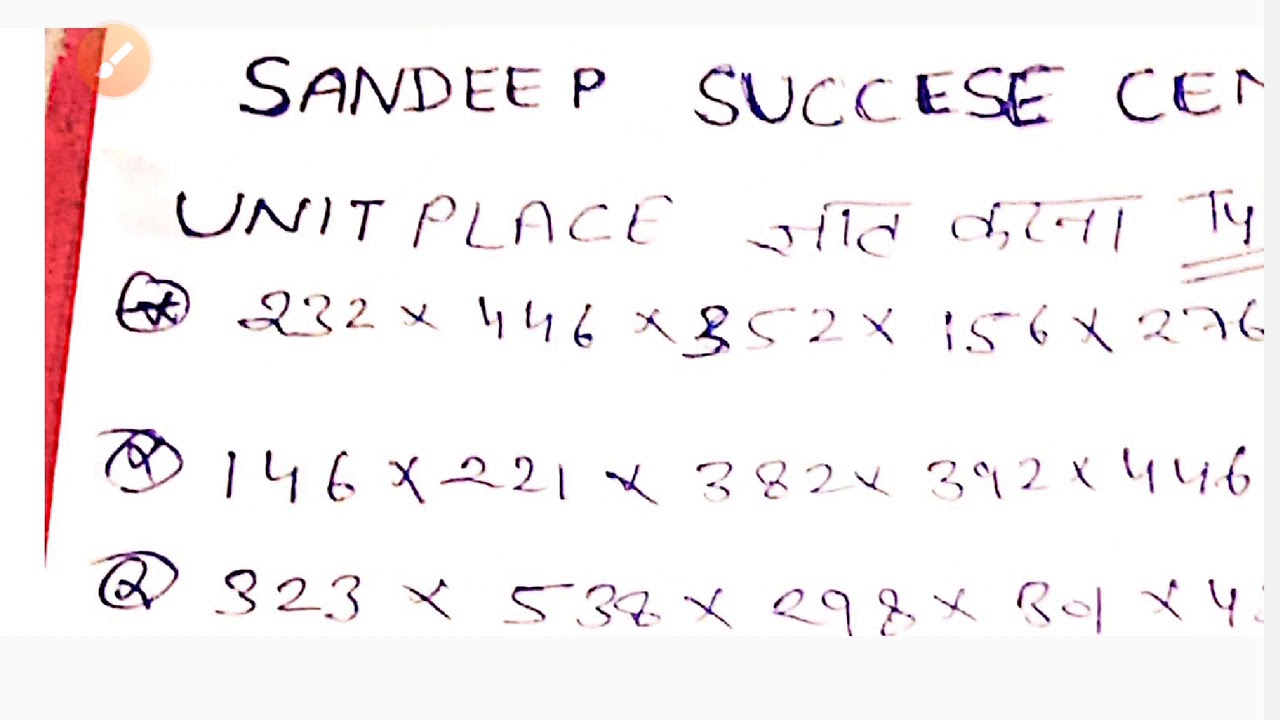 SANDEEP SUCCESE CEN
UNIT PLACE ज्ञात करना Ty
232 × 446 × 352 × 156 × 276
146 × 221 × 382 × 392 × 446
Q 323 × 538 × 298 × 301 × 4